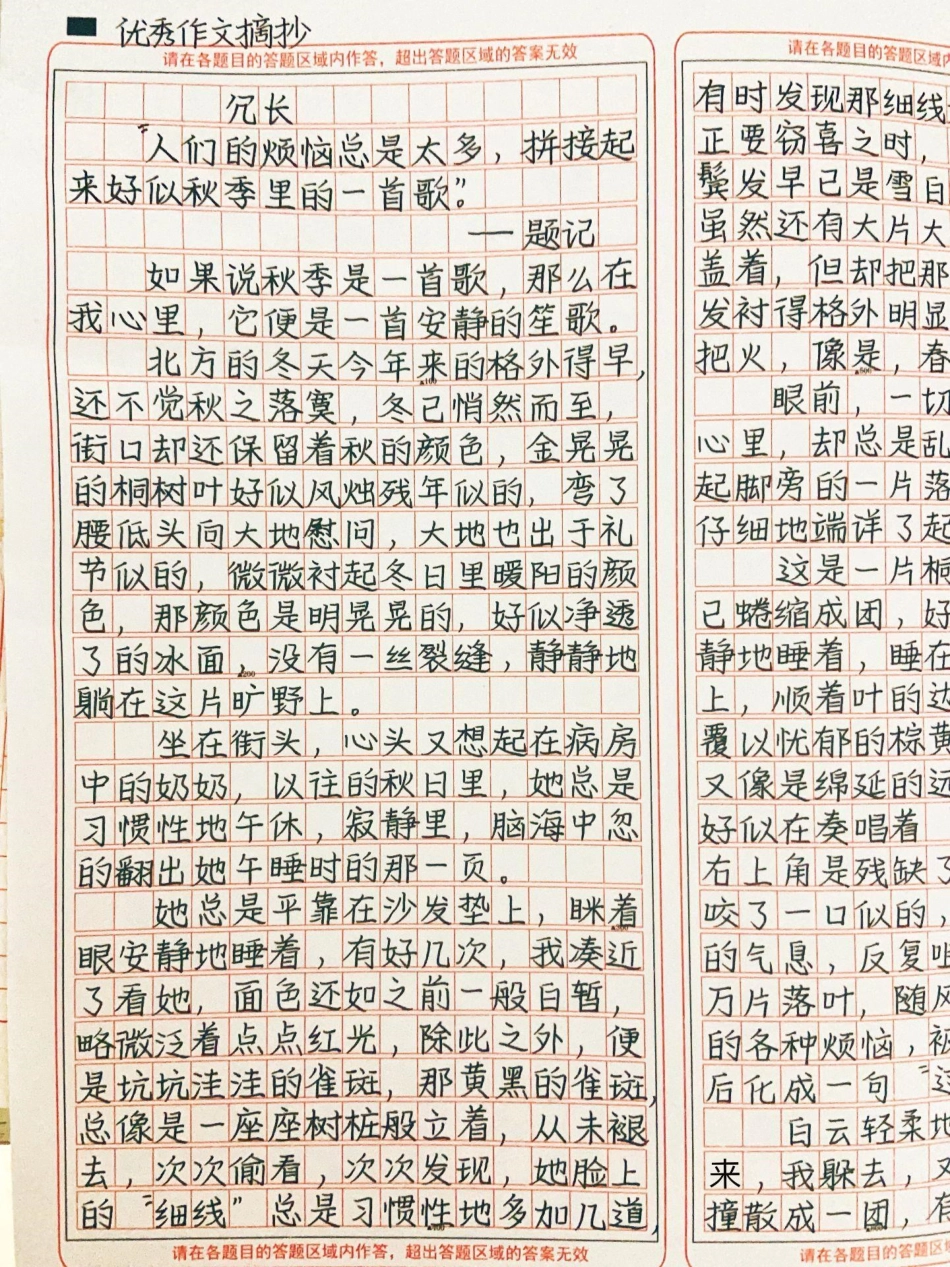 优秀作文摘抄
请在各题目的答题区域内作答，超出答题区域的答案无效
冗长
“人们的烦恼总是太多，拼接起
来好似秋季里的一首歌”。
——题记
如果说秋季是一首歌，那么在
我心里，它便是一首安静的笙歌。
北方的冬天今年来的格外得早，
还不觉秋之落寞，冬已悄然而至，
街口却还保留着秋的颜色，金晃晃
的桐树叶好似风烛残年似的，弯了
腰低头向大地慰问，大地也出于礼
节似的，微微衬起冬日里暖阳的颜
色，那颜色是明晃晃的，好似净透
了的冰面，没有一丝裂缝，静静地
躺在这片旷野上。
坐在街头，心头又想起在病房
中的奶奶，以往的秋日里，她总是
习惯性地午休，寂静里，脑海中忽
的翻出她午睡时的那一页。
她总是平靠在沙发垫上，眯着
眼安静地睡着，有好几次，我凑近
了看她，面色还如之前一般白暂，
略微泛着点点红光，除此之外，便
是坑坑洼洼的雀斑，那黄黑的雀斑，
总像是一座座树桩般立着，从未褪
去，次次偷看，次次发现，她脸上
的“细线”总是习惯性地多加几道，
请在各题目的答题区域内作答，超出答题区域的答案无效
请在各题目的答题区域内
有时发现那细线
正要窃喜之时，
鬓发早已是雪白
虽然还有大片大
盖着，但却把那
发衬得格外明显
把火，像是，春
眼前，一切
心里，却总是乱
起脚旁的一片落
仔细地端详了起
这是一片桐
己蜷缩成团，好
静地睡着，睡在
上，顺着叶的边
覆以忧郁的棕黄
又像是绵延的远
好似在奏唱着
右上角是残缺了
咬了一口似的，
的气息，反复咀
万片落叶，随风
的各种烦恼，被
后化成一句“这
白云轻柔地
来，我躲去，又
撞散成一团，有
请在各题目的答题区域